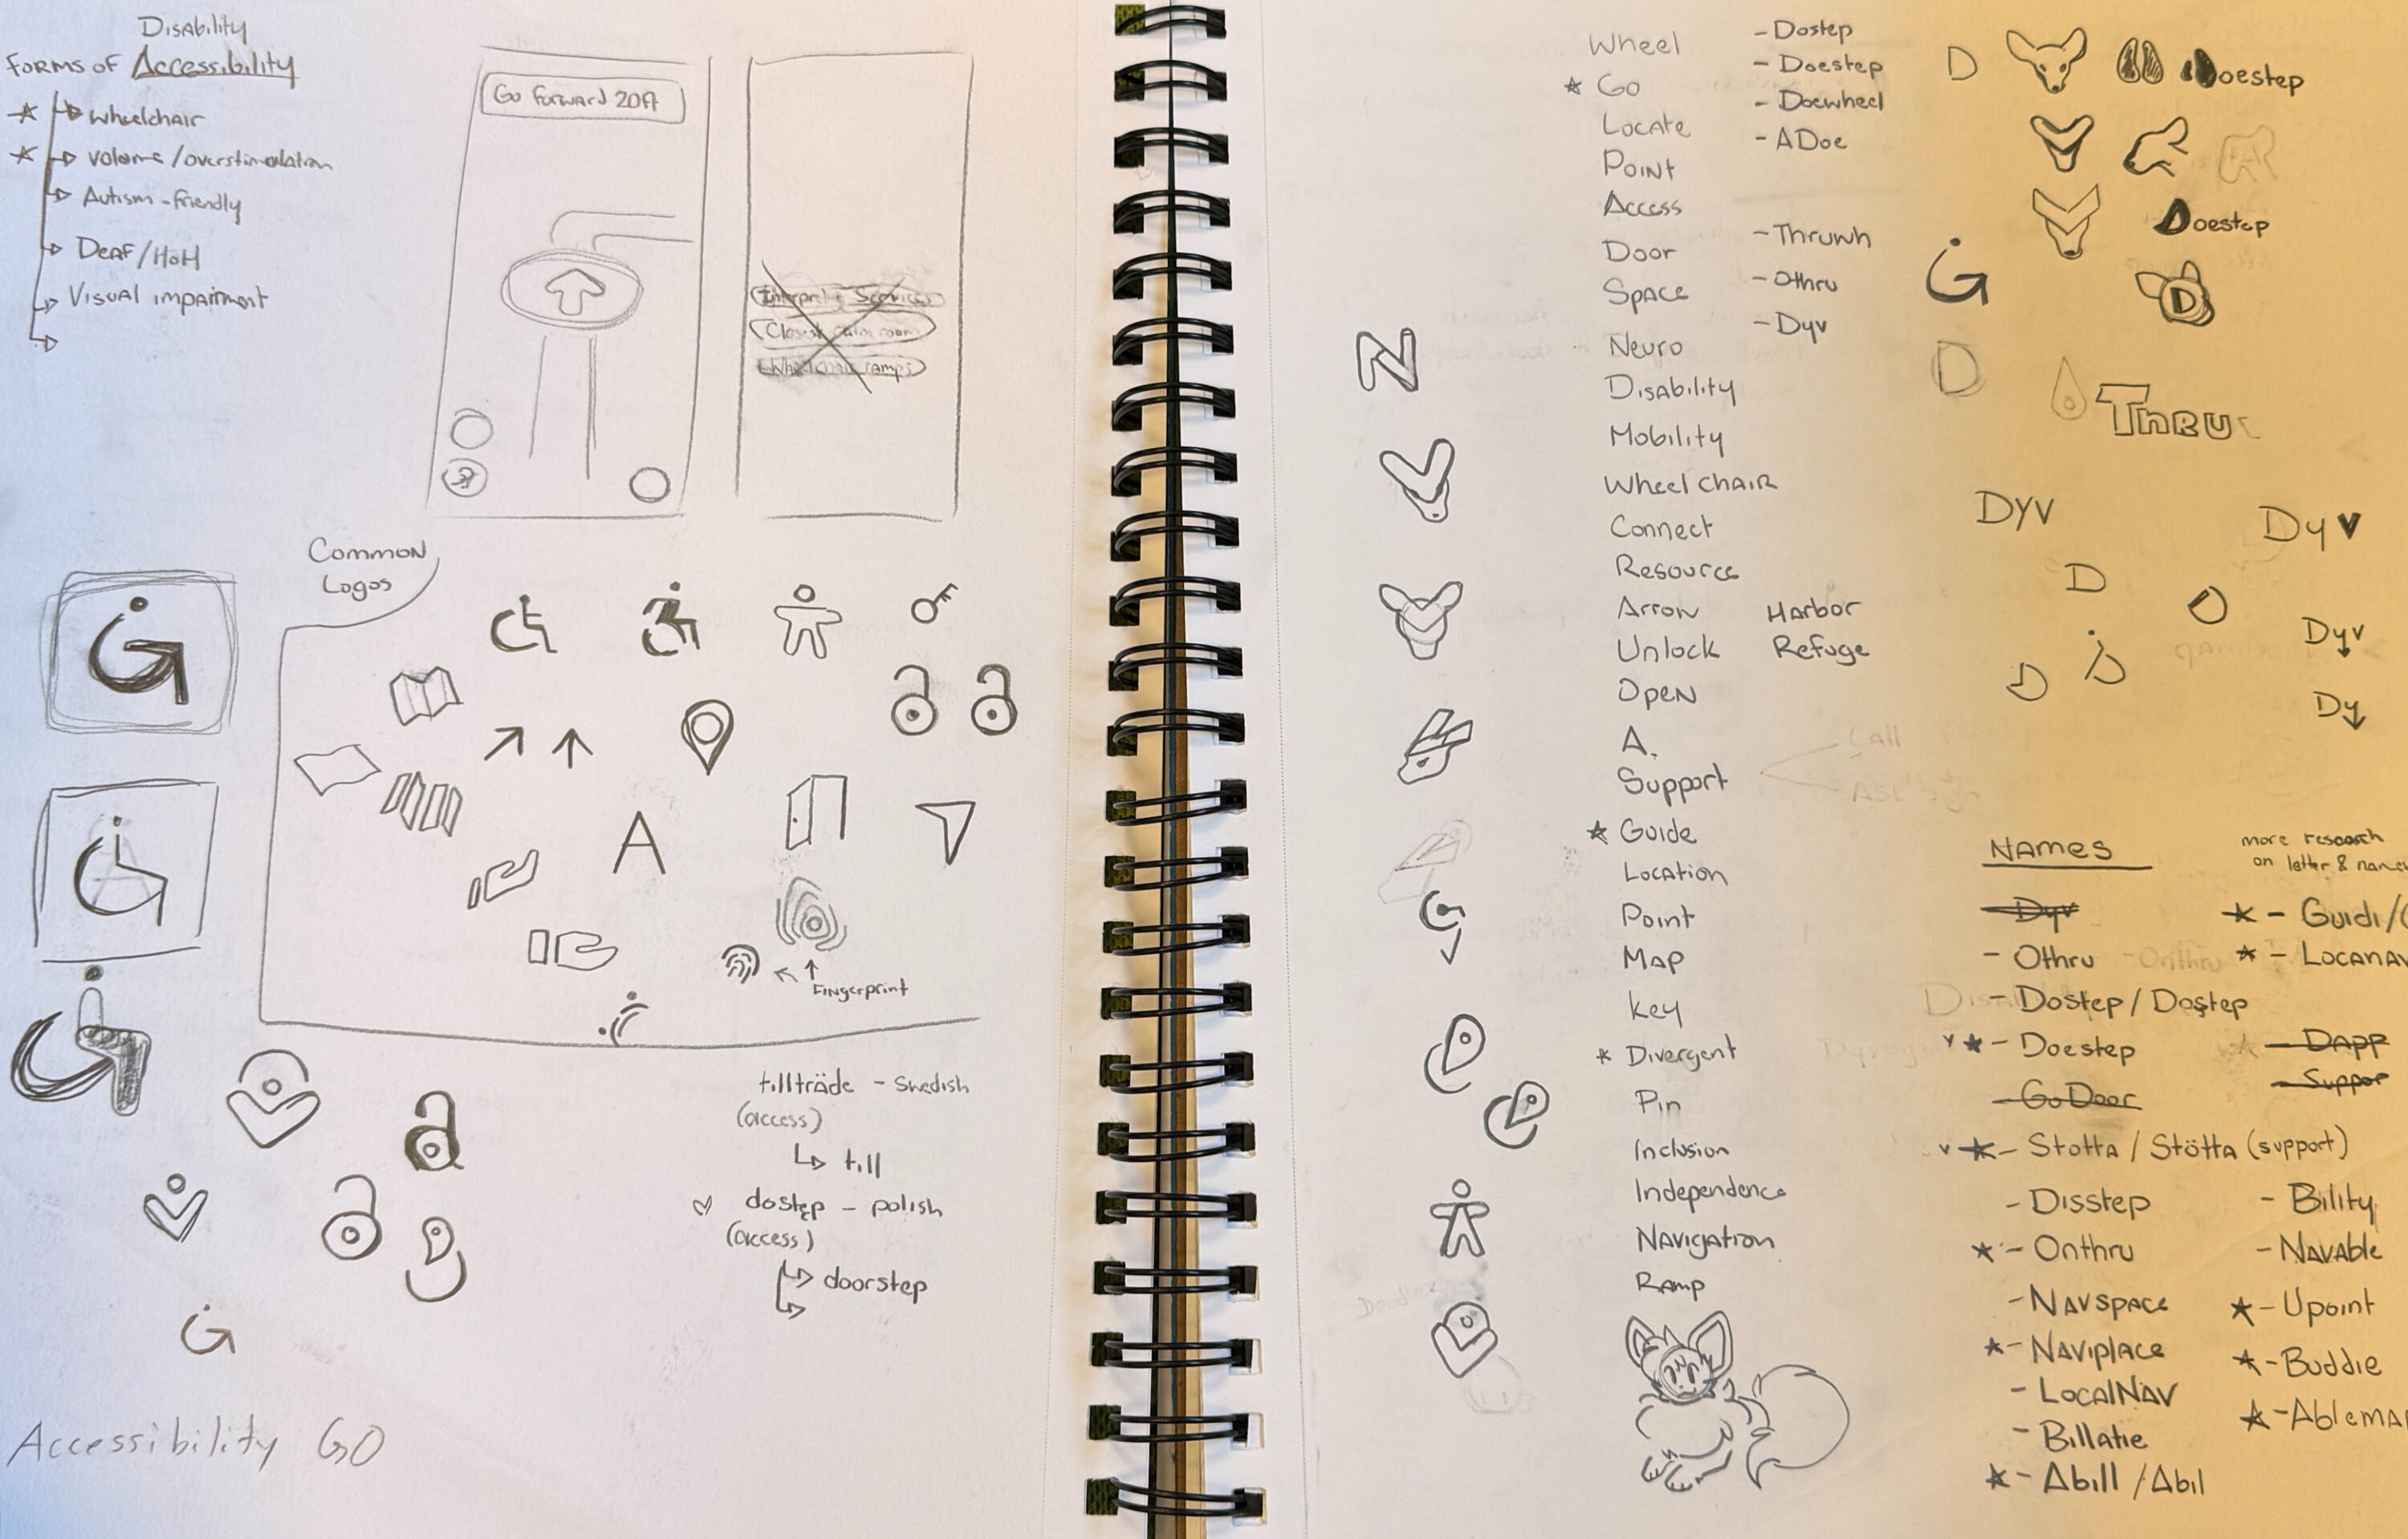 Disability
Forms of Accessibility
wheelchair
volume/overstimulation
Autism-friendly
Deaf/HoH
Visual impairment
Go Forward 20ft
Interpreting Services
Closest calm room
Wheelchair ramps
Common
Logos
A
Fingerprint
tillträde - Swedish
(access)
till
dostęp - polish
(access)
doorstep
Accessibility GO
Wheel
Go
Locate
Point
Access
Door
Space
Neuro
Disability
Mobility
Wheel chair
Connect
Resource
Arrow
Unlock
Open
A.
Support
Guide
Location
Point
Map
key
Divergent
Pin
Inclusion
Independence
Navigation
Ramp
- Dostep
- Doestep
- Doewheel
- ADoe
- Thruwh
- Othru
- Dyv
Harbor
Refuge
Call
ASL
D
Doestep
Doestep
G
D
D
Thru
Dyv
Dyv
D
D
Dyv
Dy
Names
more research
on letter &
- Dyv
- Othru - Onthru
- Dostep / Dostęp
- Doestep
- GoDoor
- Stotta / Stötta (support)
- Disstep
- Onthru
- Navspace
- Naviplace
- LocalNav
- Billatie
- Abill / Abil
- Guidi/
- Locanav
- Dapp
- Suppor
- Bility
- Navable
- Upoint
- Buddie
- Ablema